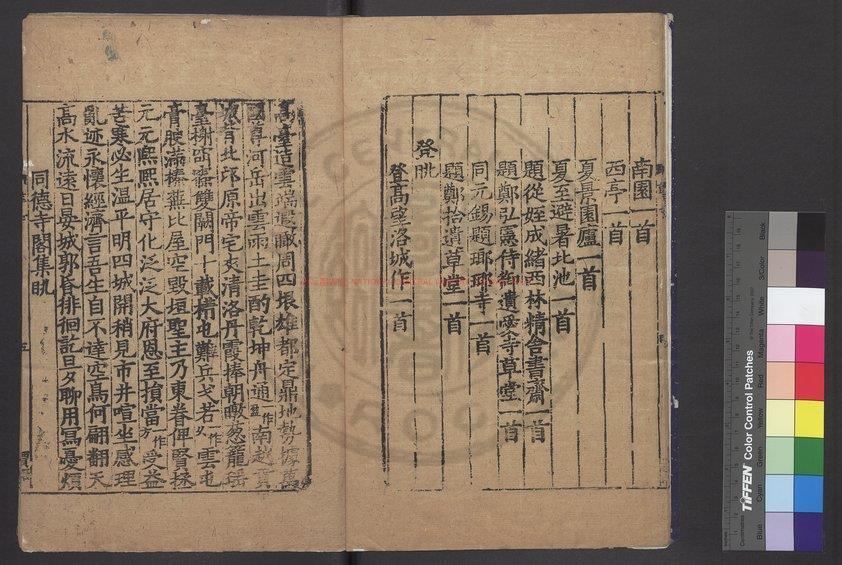 南園一首
西亭一首
夏景園廬一首
夏至避暑北池一首
題從姪成緒西林精舍書齋一首
題鄭弘憲侍御遺愛寺草堂一首
同元錫題瑯琊寺一首
題鄭拾遺草堂一首
登眺
登高望洛城作一首
高臺造雲端遐瞰周四垠雄都定鼎地勢據萬
國尊河岳出雲雨土圭酌乾坤舟通作南越貢
城背北邙原帝宅夾清洛丹霞捧朝暾葱蘢瑤
臺榭窈窕雙闕門十載構屯難兵戈若作雲屯
膏腴滿榛蕪比屋空毀垣聖主乃東眷俾賢拯
元元熙熙居守化泛泛大府恩至損當作受益
苦寒必生温平明四城開稍見市井喧坐感理
亂迹永懷經濟言吾生自不達空鳥何翩翻天
高水流遠日晏城郭昏徘徊訖旦夕聊用寫憂煩
同德寺閣集眺
CENTRAL
ROC
TIFFEN Color Control Patches
Blue
Cyan
Green
Yellow
Red
Magenta
White
3/Color
Black